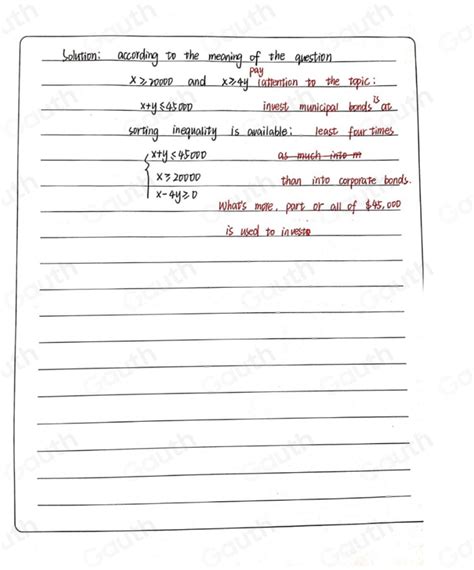 Solution: according to the meaning of the question
x ≥ 20000 and x ≥ 4y pay attention to the topic:
x+y ≤ 45000 invest municipal bonds is at
sorting inequality is available: least four times
x+y ≤ 45000 as much into m
x ≥ 20000 than into corporate bonds.
x-4y ≥ 0
What's more, part or all of $45,000
is used to invest
Gauth